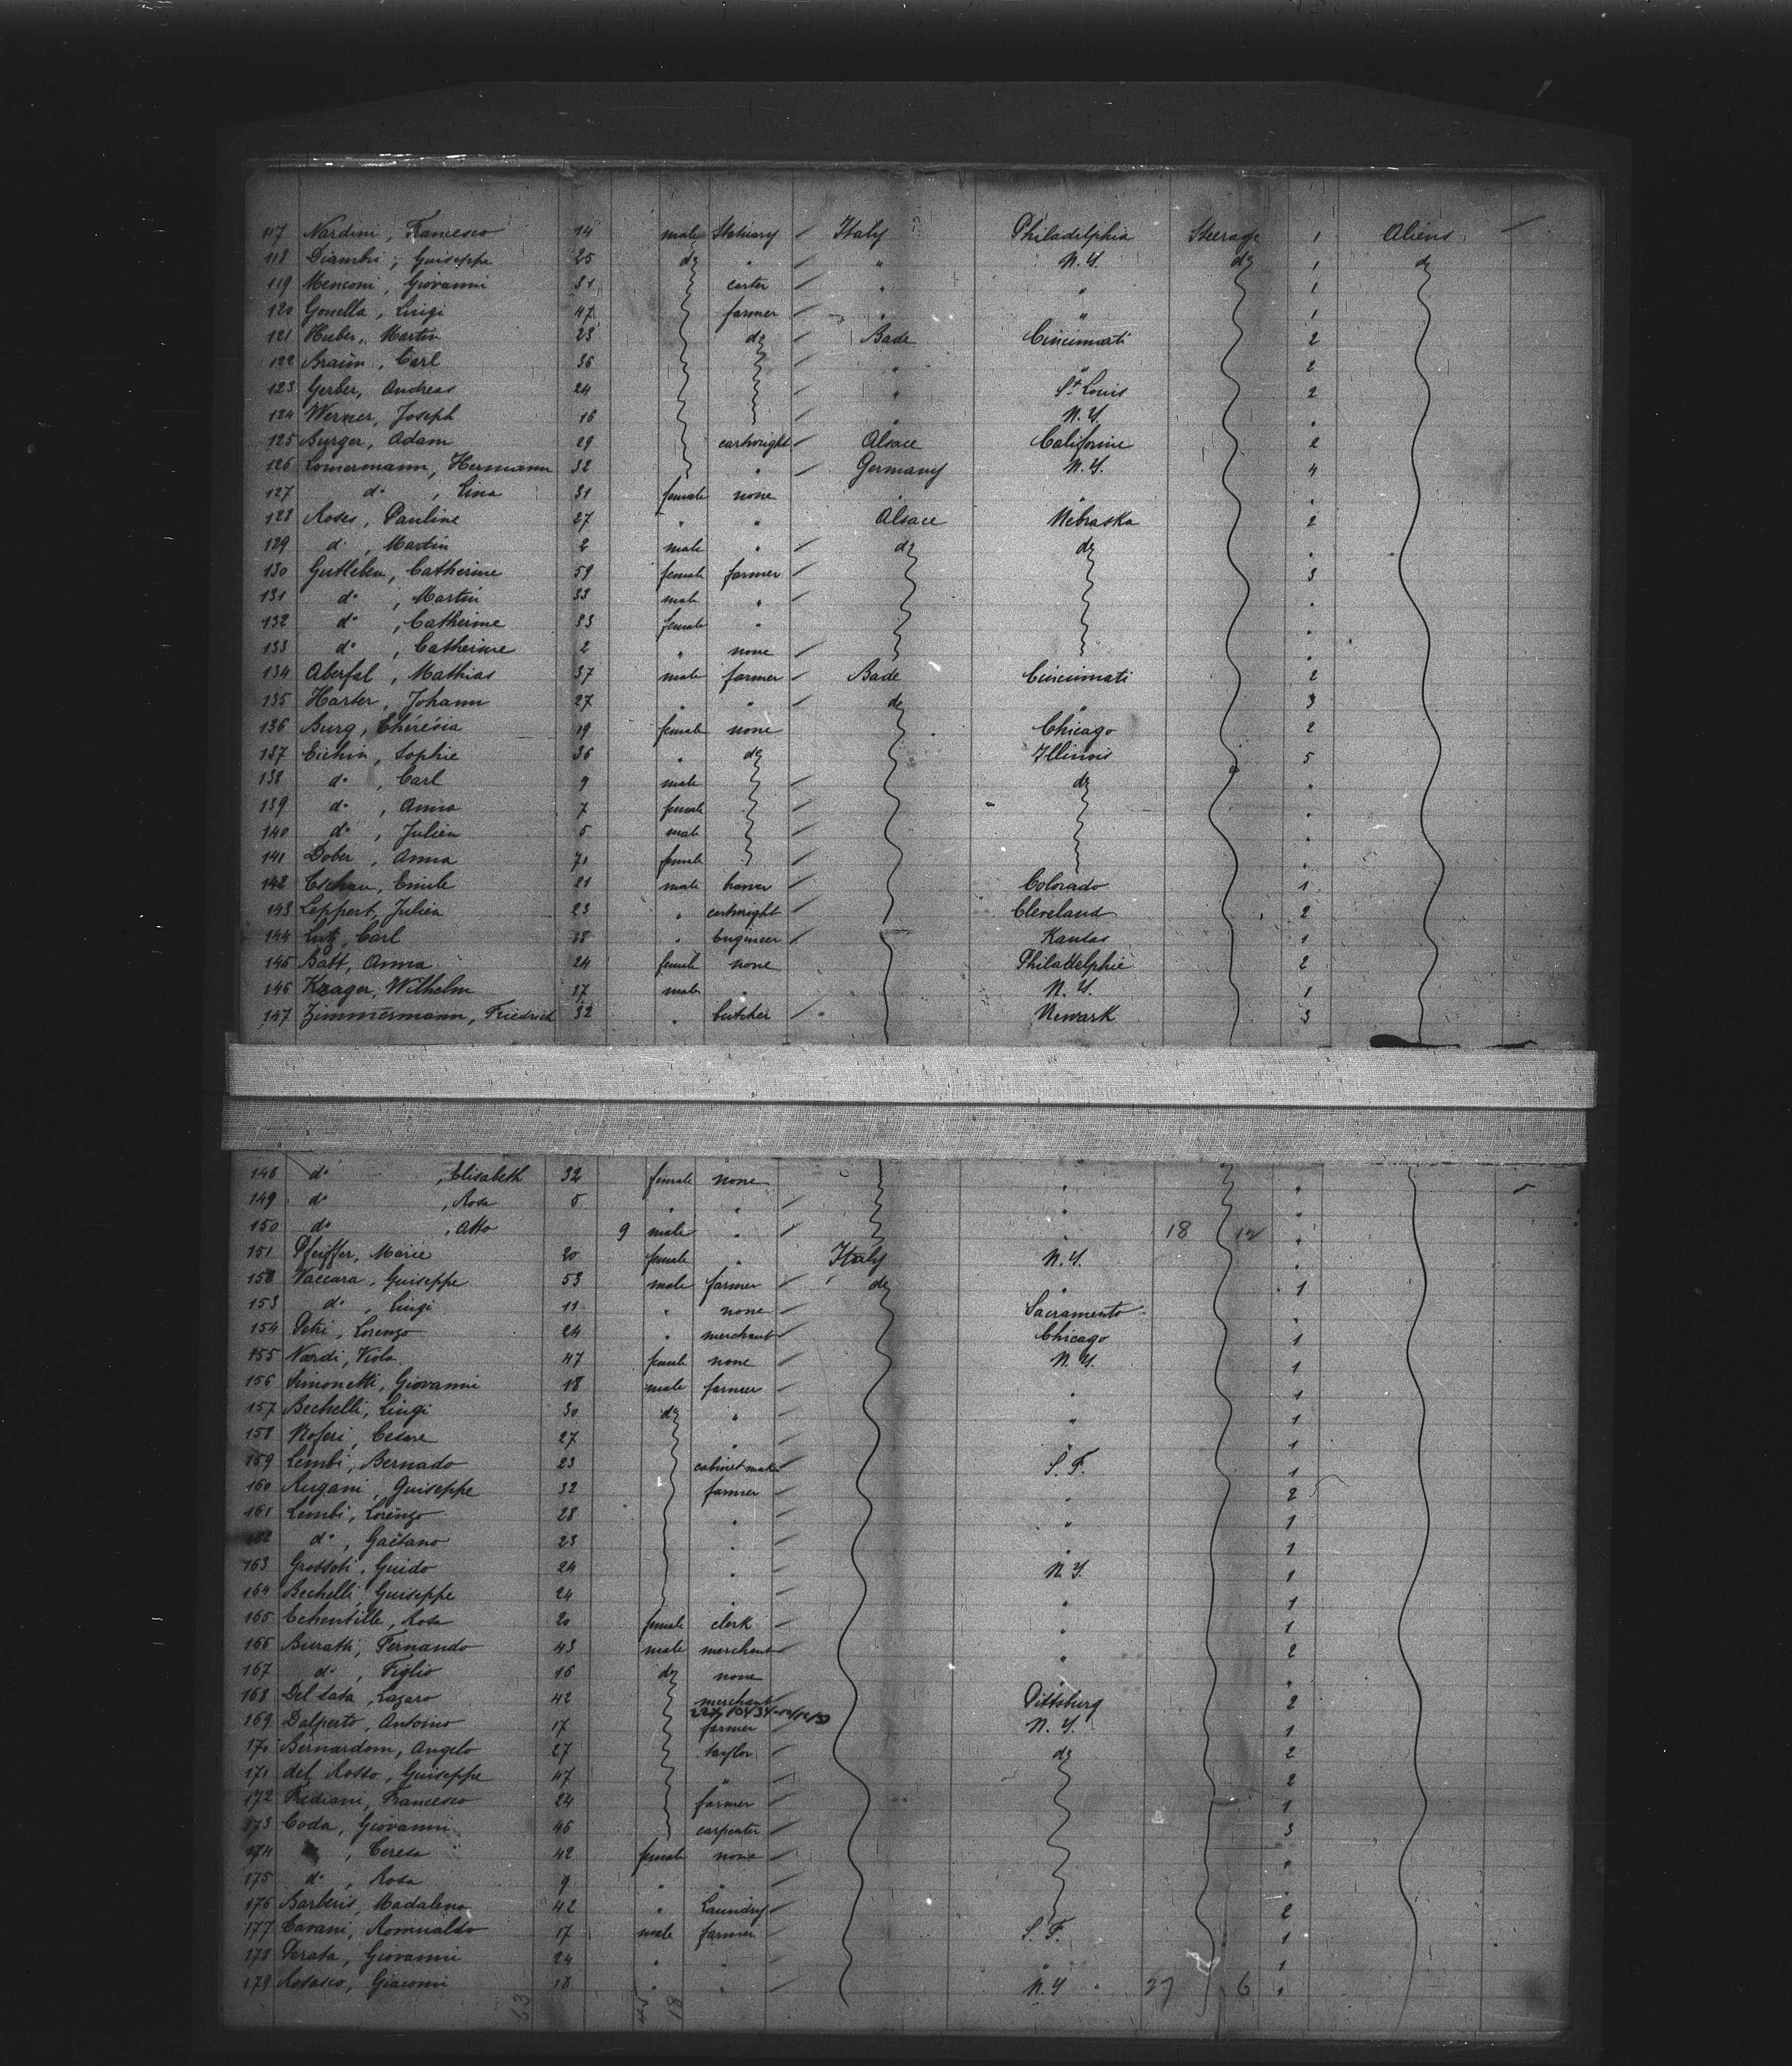 117 Nardini, Francesco 14 male Statuary Italy Philadelphia Steerage 1 Aliens
118 Diambri, Guiseppe 25 do " " N.Y. do 1 do
119 Menconi, Giovanni 31 carter " " 1
120 Gonella, Luigi 47 farmer " " 1
121 Huber, Martin 23 do Bade Cincinnati 2
122 Braun, Carl 36 " " 2
123 Gerber, Andreas 24 " St Louis 2
124 Werner, Joseph 16 " N.Y. "
125 Burger, Adam 29 cartwright Alsace Californie 2
126 Lomermann, Hermann 32 " Germany N.Y. 4
127 do, Lina 31 female none " " "
128 Roses, Pauline 27 " " Alsace Nebraska 2
129 do, Martin 2 male " do do "
130 Gutleben, Catherine 59 female farmer 3
131 do, Martin 33 male " "
132 do, Catherine 33 female " "
133 do, Catherine 2 " none "
134 Aberfal, Mathias 37 male farmer Bade Cincinnati 2
135 Harter, Johann 27 " " do " 3
136 Burg, Thérésia 19 female none Chicago 2
137 Eichin, Sophie 36 " do Illinois 5
138 do, Carl 9 male do "
139 do, Anna 7 female "
140 do, Julien 5 male "
141 Dober, Anna 71 female "
142 Eschau, Emile 21 male Colorado 1
143 Leppert, Julien 23 " cartwright Cleveland 2
144 Lutz, Carl 18 " Engineer Kansas 1
145 Batt, Anna 24 female none Philadelphie 2
146 Krager, Wilhelm 17 male " N.Y. 1
147 Zimmermann, Friedrich 32 " butcher Newark 3
148 do, Elisabeth 32 female none " "
149 do, Rosa 5 " " " "
150 do, Otto 9 male " " 18 12 "
151 Pfeiffer, Marie 20 female " Italy N.Y. "
152 Vaccara, Guiseppe 53 male farmer do " 1
153 do, Luigi 11 " none Sacramento "
154 Petri, Lorenzo 24 " merchant Chicago 1
155 Nardi, Viola 47 female none N.Y. 1
156 Simonetti, Giovanni 18 male farmer " 1
157 Bechelli, Luigi 30 do " " 1
158 Roferi, Cesare 27 " " 1
159 Lembi, Bernado 23 cabinet maker S.F. 1
160 Rugani, Guiseppe 32 farmer " 2
161 Lembi, Lorenzo 28 " " 1
162 do, Gaëtano 23 " " 1
163 Grossoti, Guido 24 " N.Y. 1
164 Bechelli, Guiseppe 24 " " 1
165 Echentille, Rosa 20 female clerk " 1
166 Buratti, Fernando 43 male merchant " 2
167 do, Figlio 16 do none " "
168 Del Lata, Lazaro 42 merchant Pittsburg 2
169 Dalperto, Antonio 17 farmer N.Y. 1
170 Bernardom, Angelo 27 taylor do 2
171 del Rosso, Guiseppe 47 " 2
172 Frediani, Francesco 24 farmer 1
173 Coda, Giovanni 46 carpenter 3
174 , Teresa 42 female none "
175 do, Rosa 9 " " "
176 Barberis, Madalena 42 " Laundry 2
177 Cavani, Romualdo 17 male farmer S.F. 1
178 Perata, Giovanni 24 " " " 1
179 Rosasco, Giacomi 18 " " N.Y. 27 6 "
63 45 18